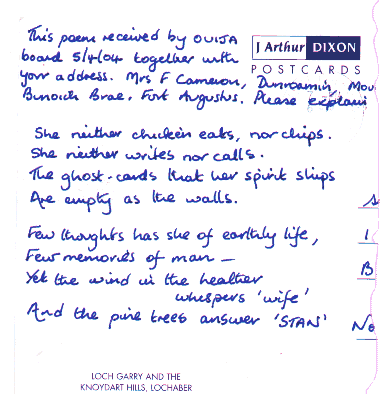 This poem received by OUIJA
board 5/4/04 together with
your address. Mrs F Cameron, Dunroamin, Mou
Benoich Brae, Fort Augustus. Please explain
J Arthur DIXON
POSTCARDS
She neither chicken eats, nor chips.
She neither writes nor calls.
The ghost-cards that her spirit ships
Are empty as the walls.
Few thoughts has she of earthly life,
Few memories of man –
Yet the wind in the heather
whispers 'wife'
And the pine trees answer 'STAN'
1
B
No
LOCH GARRY AND THE
KNOYDART HILLS, LOCHABER